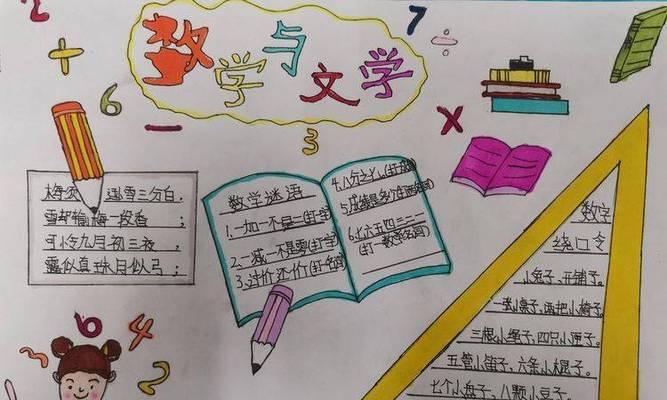 数学与文学
2
7
+
÷
6
−
3
x
梅须逊雪三分白,
雪却输梅一段香;
可怜九月初三夜,
露似真珠月似弓;
数学谜语
1.一加一不是二(打一字)
2.一减一不是零(打一字)
3.讨价还价(打一名词)
4.八分之七(打一成语)
5.成绩是多少
6.七六五四三二一
(打一数学名词)
数字
绕口令
小兔子,开铺子。
一张小桌子,两把小椅子。
三根小绳子,四只小匣子。
五管小笛子,六条小棍子。
七个小盘子,八颗小豆子。
6
4
2